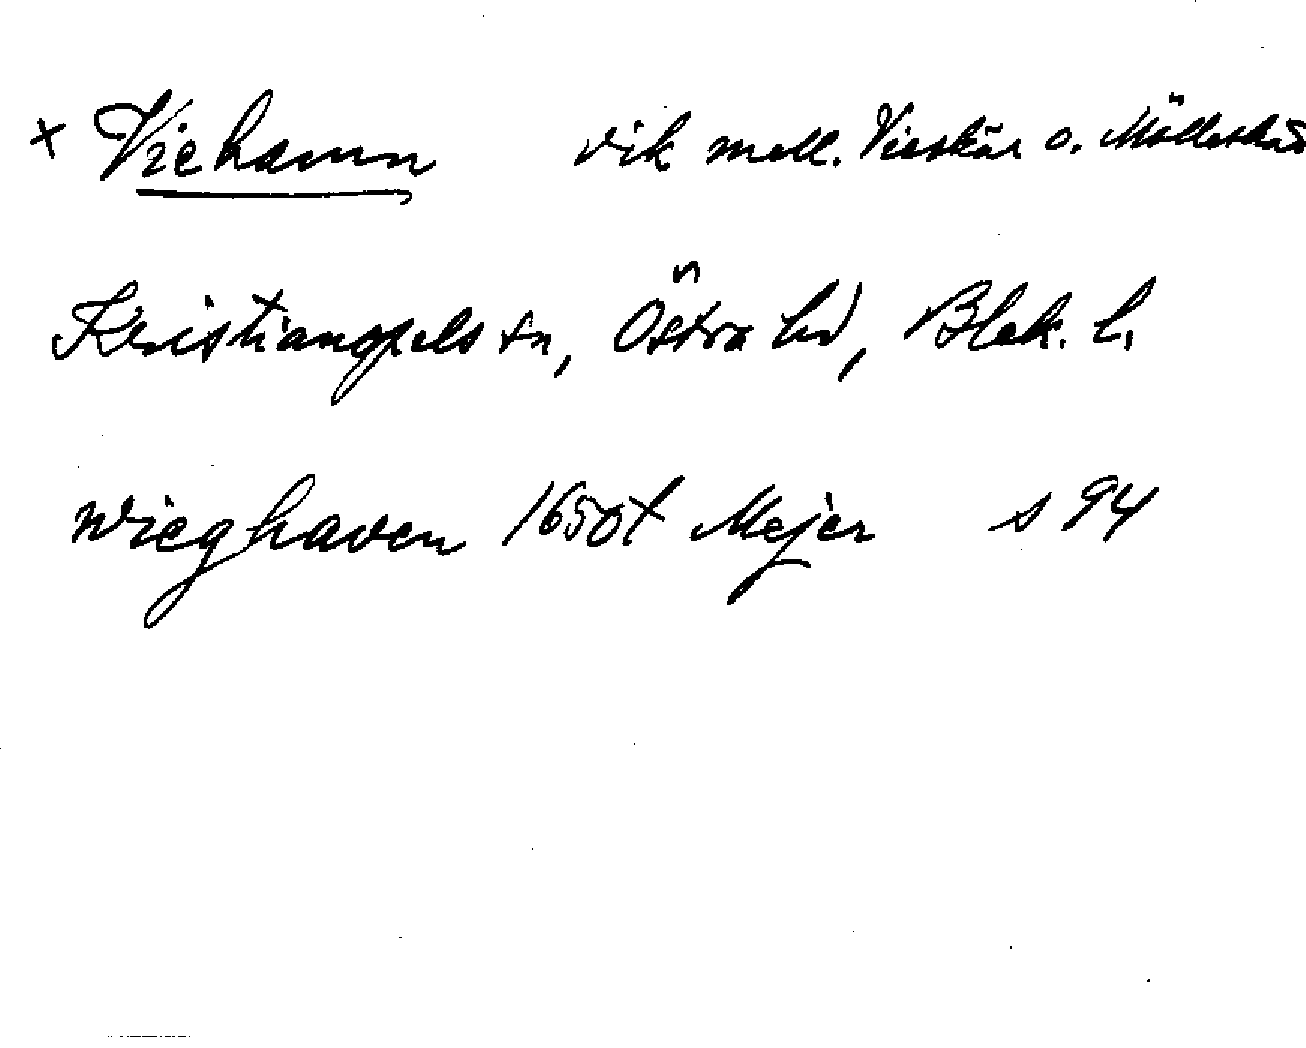 + Viehamn vik mell. Vieskär o. Mölleskär
Kristianopels sn, Östra hd, Blek. l.
Wieghaven 1650t Mejer s 94